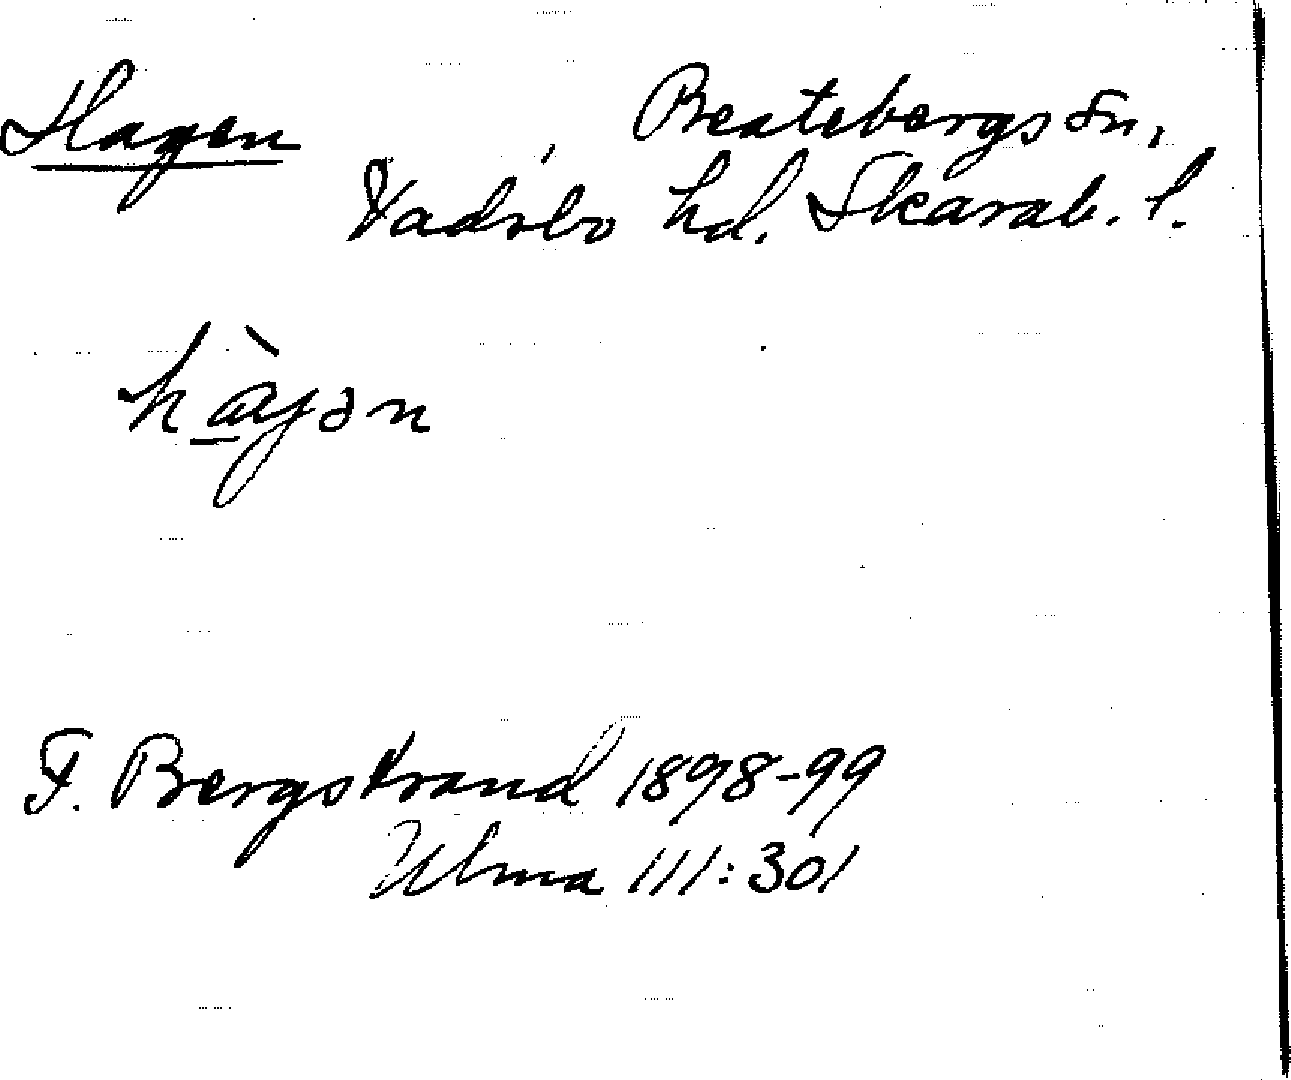 Hagen, Beatebergs sn,
Vadsbo hd. Skarab. l.
hàgən
F. Bergstrand 1898-99
Ulma 111:301